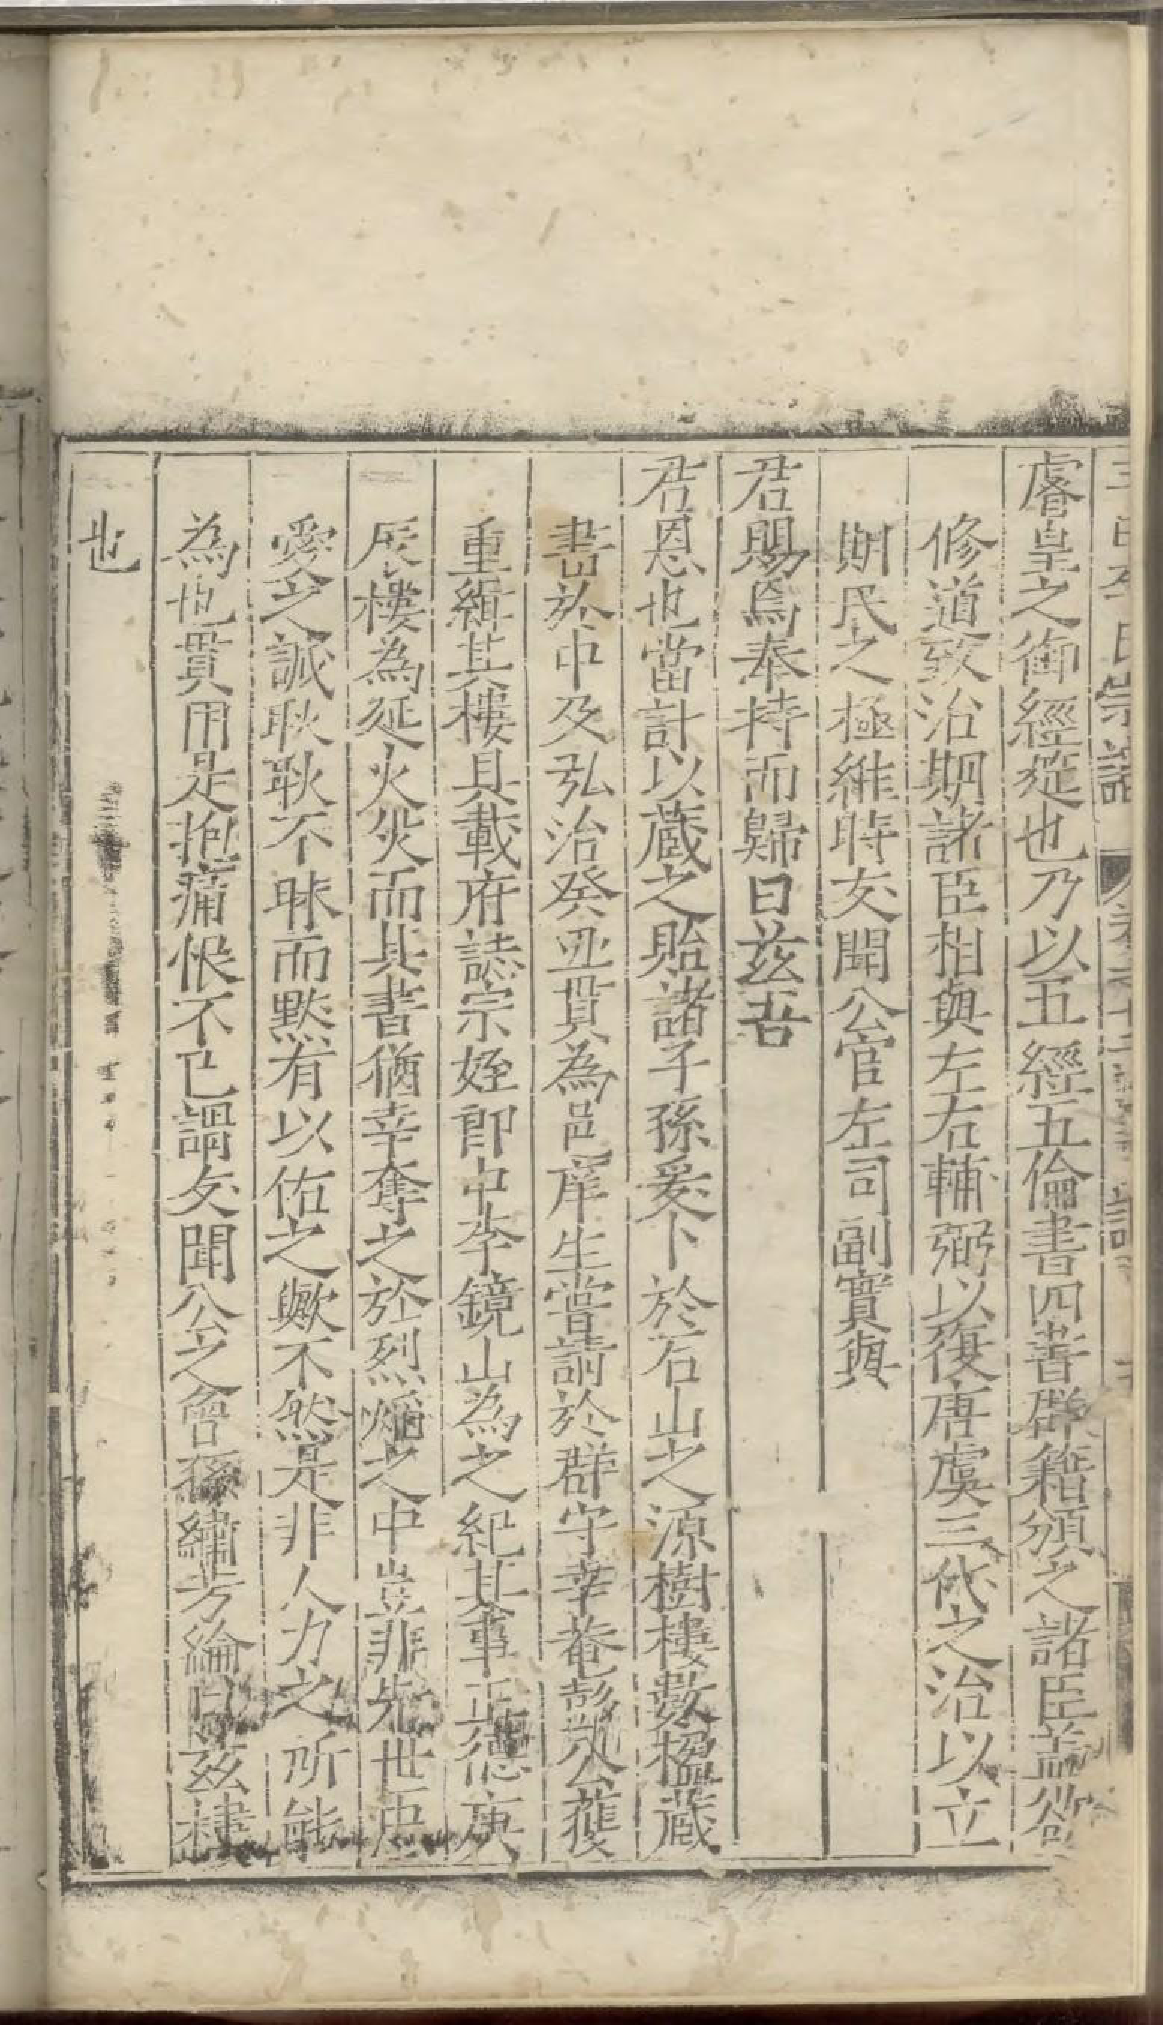 睿皇之御經筵也乃以五經五倫書四書群籍頒之諸臣蓋欲
修道致治期諸臣相與左右輔弼以復唐虞三代之治以立
斯民之極維時文聞公官左司副實與
君賜焉奉持而歸曰茲吾
君恩也當計以藏之貽諸子孫爰卜於石山之源樹樓數楹藏
書於中及弘治癸丑貫為邑庠生嘗請於群守幸菴彭公獲
重緝其樓具載府誌宗姪郎中李鏡山為之紀其事正德庚
辰樓為延火災而其書猶幸奪之於烈燄之中豈非先世忠
愛之誠耿耿不昧而默有以佑之歟不然是非人力之所能
為也貫用是抱痛恨不已謂文聞公之曾孫繡芳綸曰茲樓
也